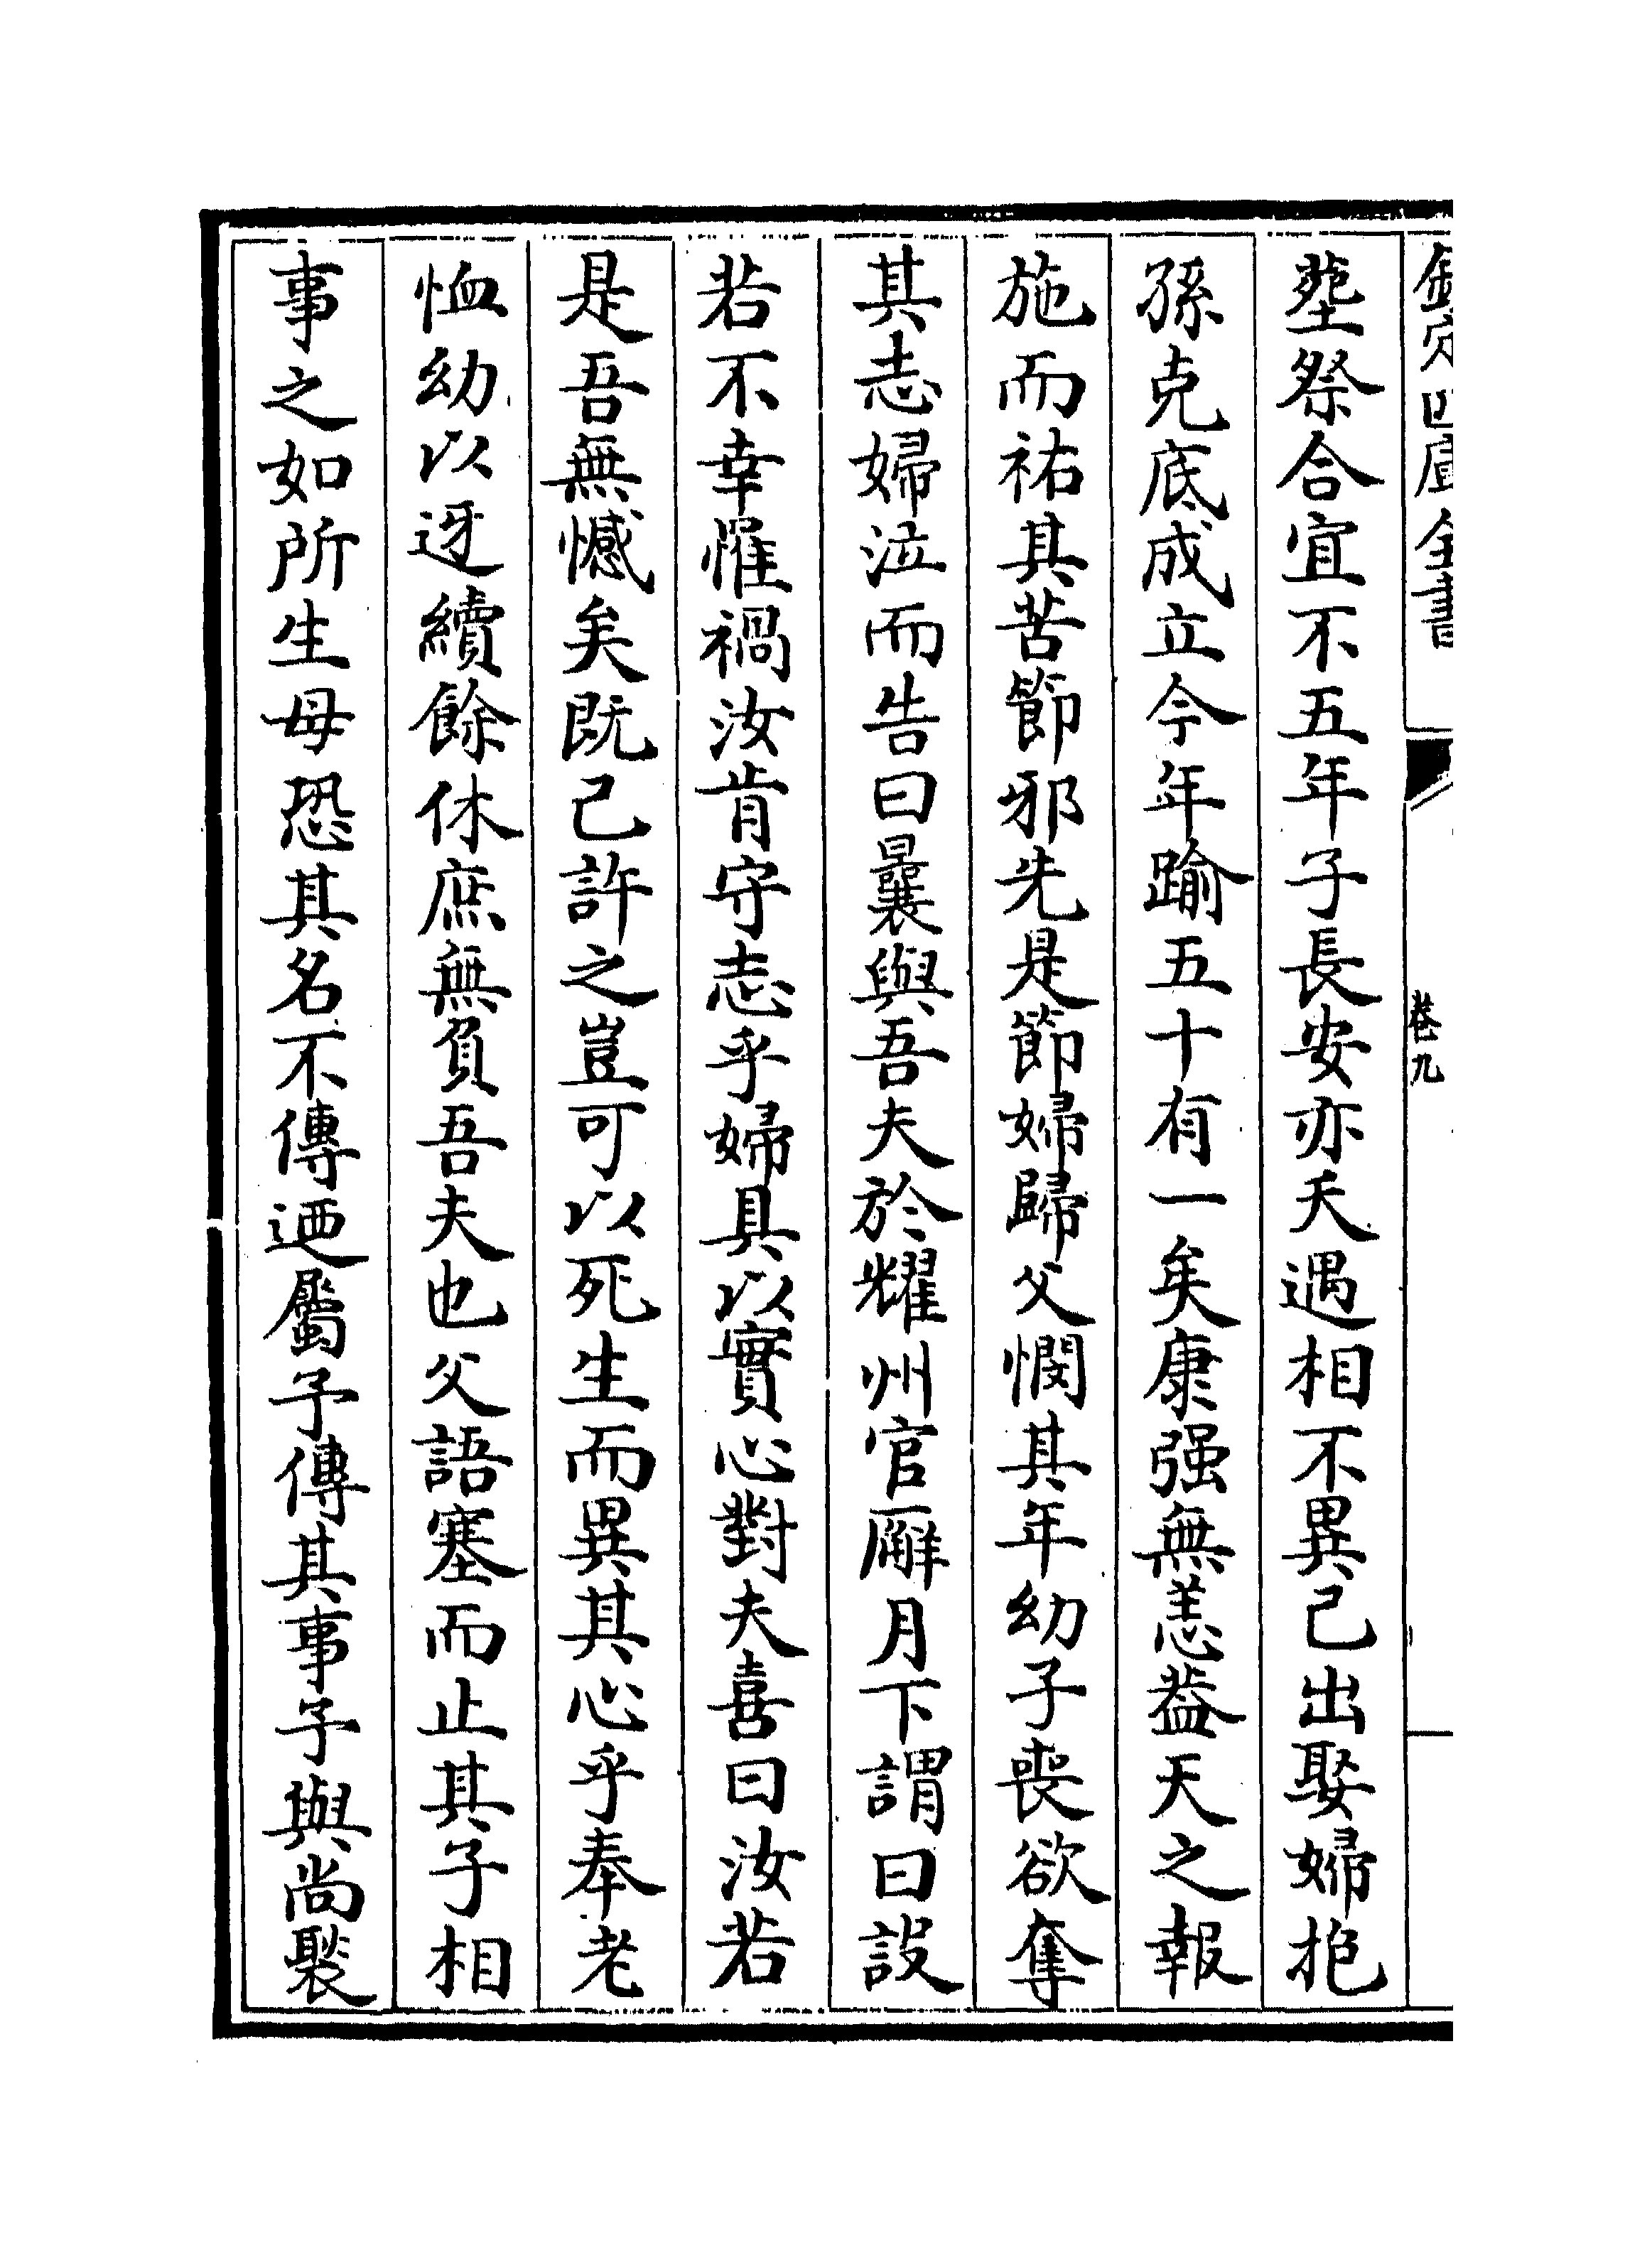 欽定四庫全書
卷九
塟祭合宜不五年子長安亦夭遇相不異己出娶婦抱
孫克底成立今年踰五十有一矣康强無恙葢天之報
施而祐其苦節邪先是節婦歸父憫其年幼子喪欲奪
其志婦泣而告曰曩與吾夫於耀州官廨月下謂曰設
若不幸罹禍汝肯守志乎婦具以實心對夫喜曰汝若
是吾無憾矣既已許之豈可以死生而異其心乎奉老
恤幼以迓續餘休庶無負吾夫也父語塞而止其子相
事之如所生母恐其名不傳迺屬予傳其事予與尚褧